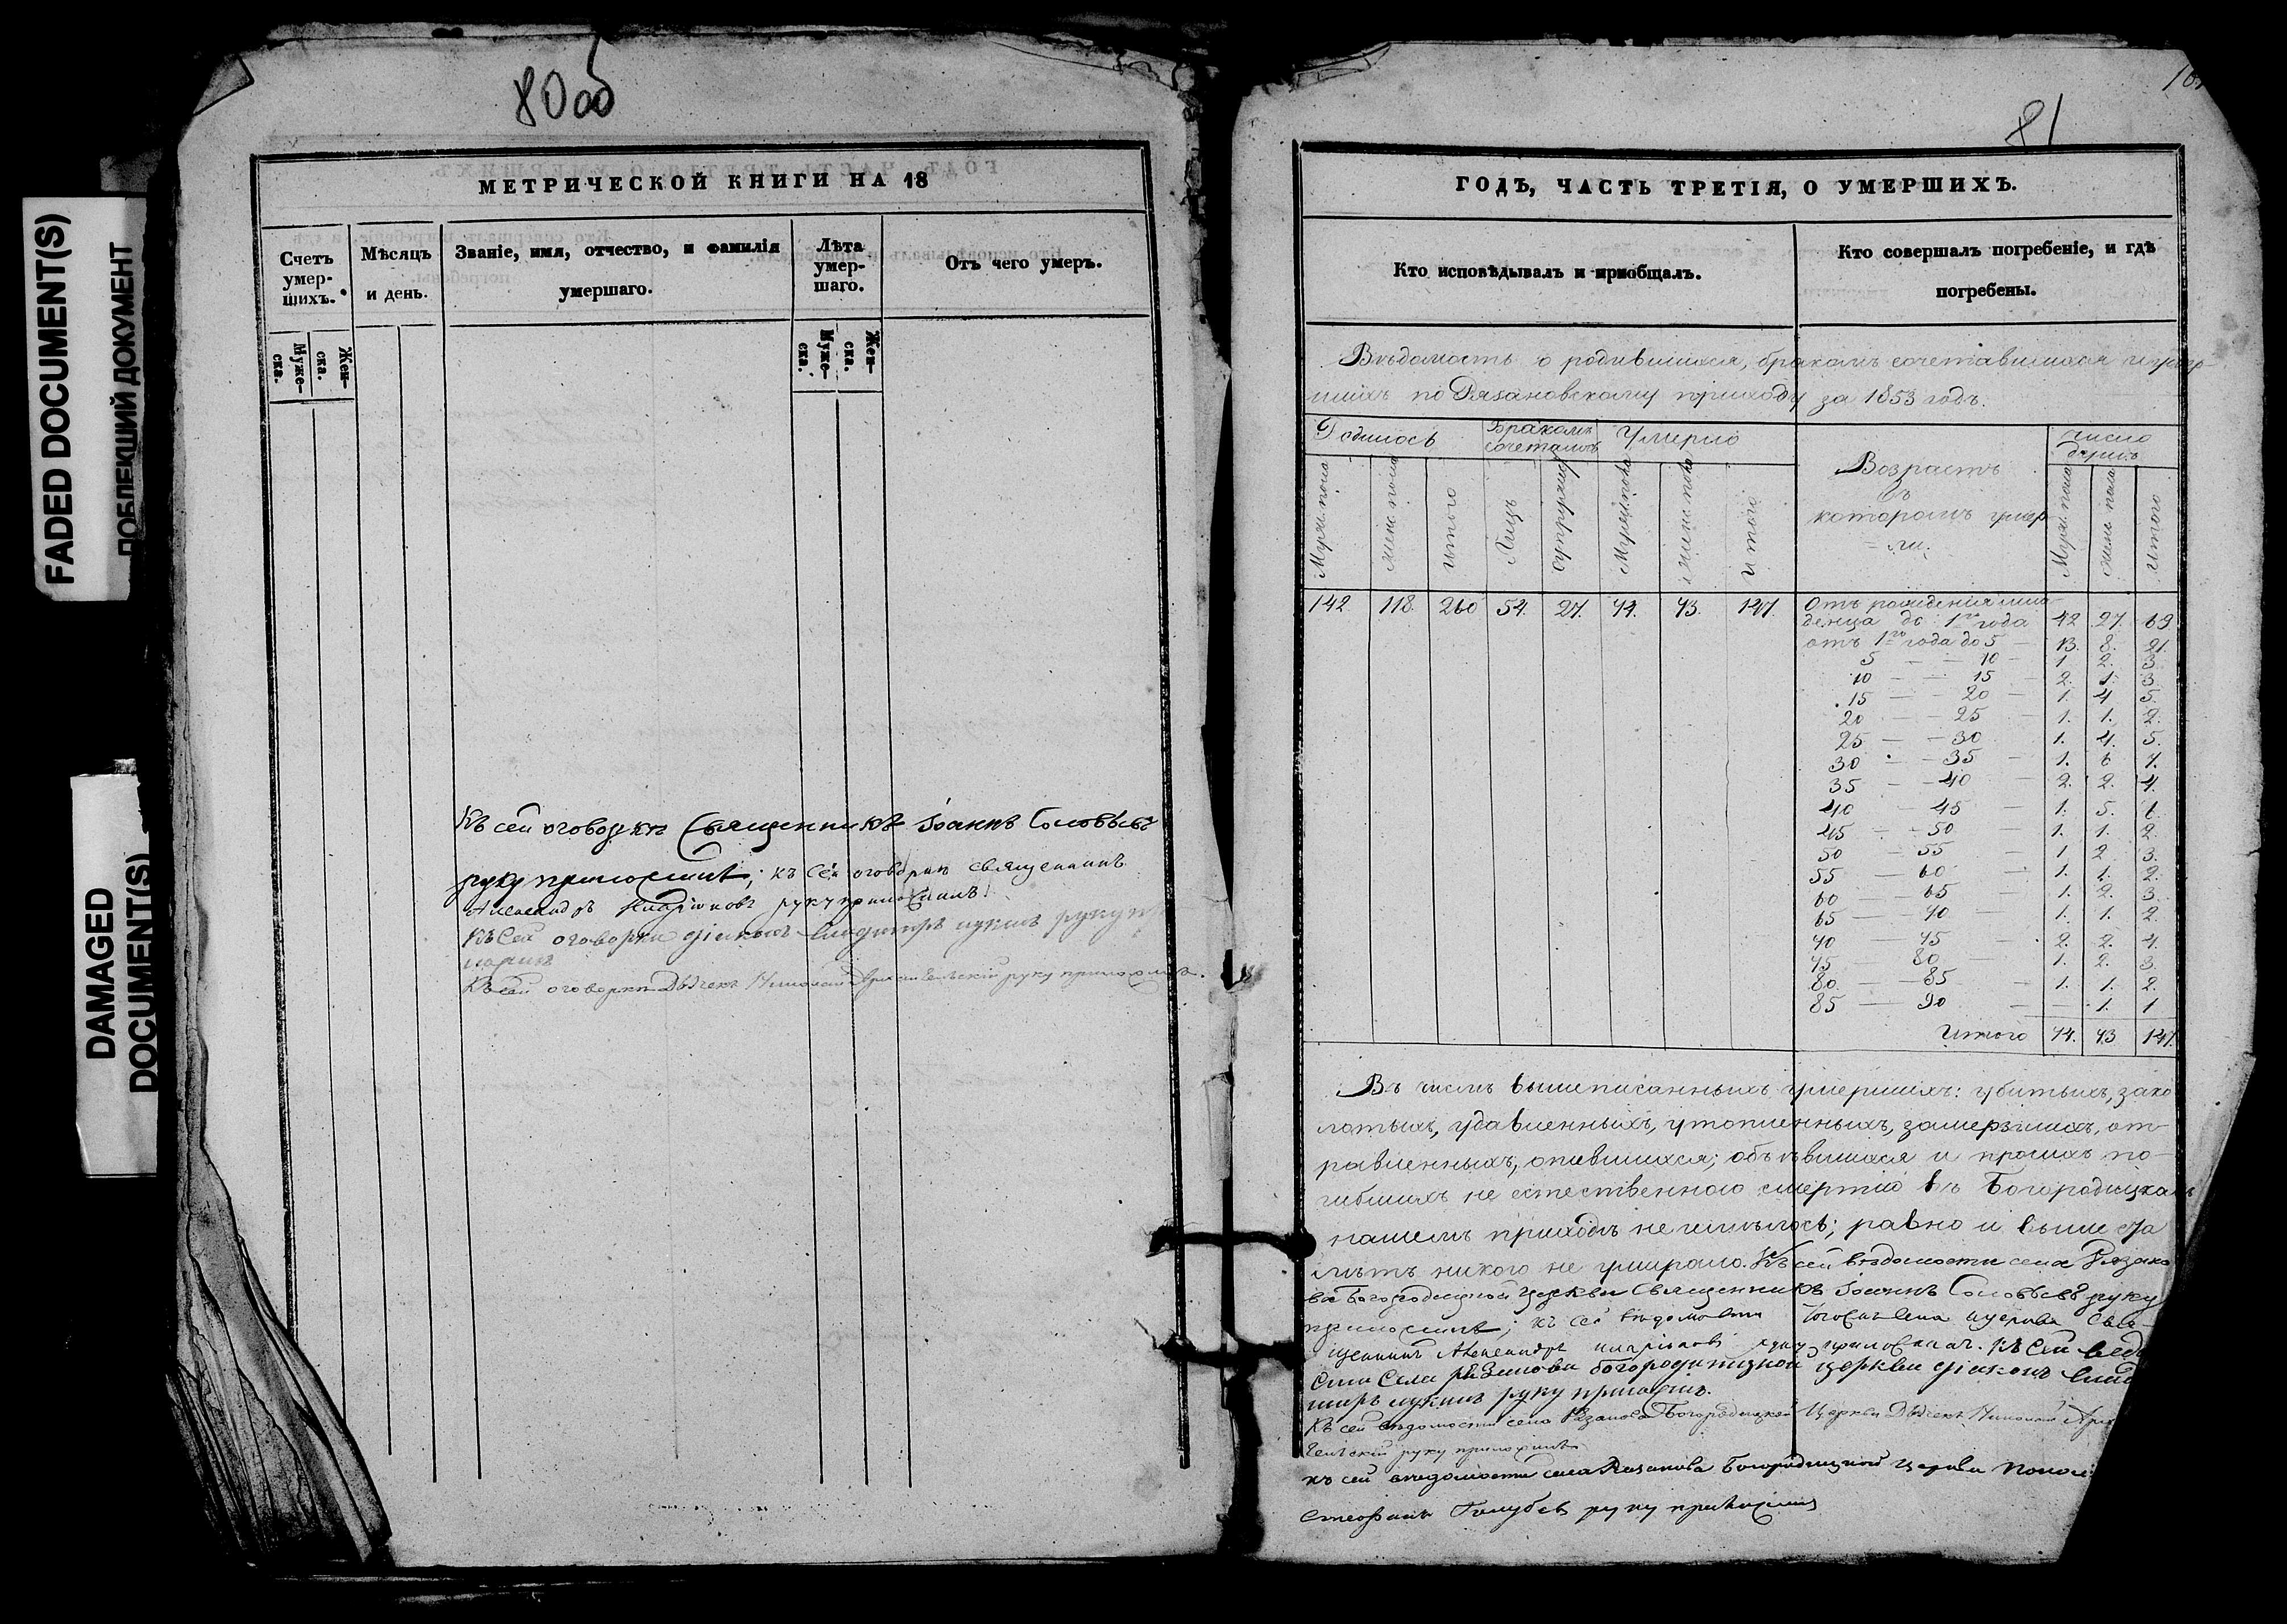 FADED DOCUMENT(S)
ПОБЛЕКШИЙ ДОКУМЕНТ
DAMAGED
DOCUMENT(S)
80 об
МЕТРИЧЕСКОЙ КНИГИ НА 18
Счетъ умер-шихъ.
Мѣсяцъ и день.
Званіе, имя, отчество, и фамилія умершаго.
Лѣта умер-шаго.
Отъ чего умеръ.
Муже-ска.
Жен-ска.
Муже-ска.
Жен-ска.
Къ сей оговоркѣ Священникъ Іоаннъ Соловьевъ
руку приложилъ; къ сей оговоркѣ священникъ
Александръ Иларіоновъ руку приложилъ.
Къ сей оговорки діаконъ Владимiръ Лукинъ руку при
ложилъ
Къ сей оговорки Дьячекъ Николай Архангельскій руку приложилъ.
81
ГОДЪ, ЧАСТЬ ТРЕТІЯ, О УМЕРШИХЪ.
Кто исповѣдывалъ и пріобщалъ.
Кто совершалъ погребеніе, и гдѣ погребены.
Вѣдомость о родившихся, бракомъ сочетавшихся и умер-
шихъ по Рязановскому приходу за 1853 годъ.
Родилось
Бракомъ сочеталось
Умерло
Возрастъ въ которомъ умер-ли.
число
Муж. пола
Женс. пола
Итого
Лицъ
Супружествъ
Мужес. пола
Женс. пола
Итого
Муж. пола
Женс. пола
Итого
142. 118. 260 54. 27. 74. 73. 147.
Отъ рожденія мла-
денца до 1го года 42 27. 69
отъ 1го года до 5 — 13. 8. 21.
5 — — 10 — 1. 2. 3.
10 — — 15 — 2. 1. 3.
15 — — 20 — 1. 4 5.
20 — — 25 — 1. 1. 2.
25 — — 30 1. 4. 5.
30 — — 35 — 1. 6 7.
35 — — 40 — 2. 2. 4.
40 — — 45 — 1. 5. 6.
45 — — 50 — 1. 1. 2.
50 — 55 — 1 2 3.
55 — 60 — 1. 1. 2.
60 — 65 — 1. 2. 3.
65 — 70 — 1. 1. 2.
70 — 75 — 2. 2. 4.
75 — 80 — 1. 2. 3.
80 — — 85 — 1. 1. 2.
85 — 90 — — 1. 1
Итого 74. 73 147.
Въ числѣ вышеписанныхъ умершихъ: убитыхъ, зако
лотыхъ, удавленныхъ, утопленныхъ, замерзшихъ, от-
равленныхъ, опившихся; объѣвшихся и прочихъ по-
гибшихъ не естественною смертію въ Богородицкомъ
нашемъ приходѣ не имѣлось; равно и выше ста
лѣтъ никого не умирало. Къ сей вѣдомости села Рязано
ва Богородицкой Церкви Священникъ Іоаннъ Соловьевъ руку
приложилъ; къ сей вѣдомости тогожъ села церкви Свя-
щенникъ Александръ Иларіоновъ руку приложилъ. Къ сей ведо
сти Села Рязанова богородитцкой церкви діаконъ Влади
миръ Лукинъ руку приложилъ.
Къ сей вѣдомости села Рязанова Богородицкой Церкви Дьячекъ Николай Арх
гельскій руку приложилъ
къ сей ведомости села Рязанова Богородицкой Церкви Поном
Стефанъ Голубевъ руку приложилъ